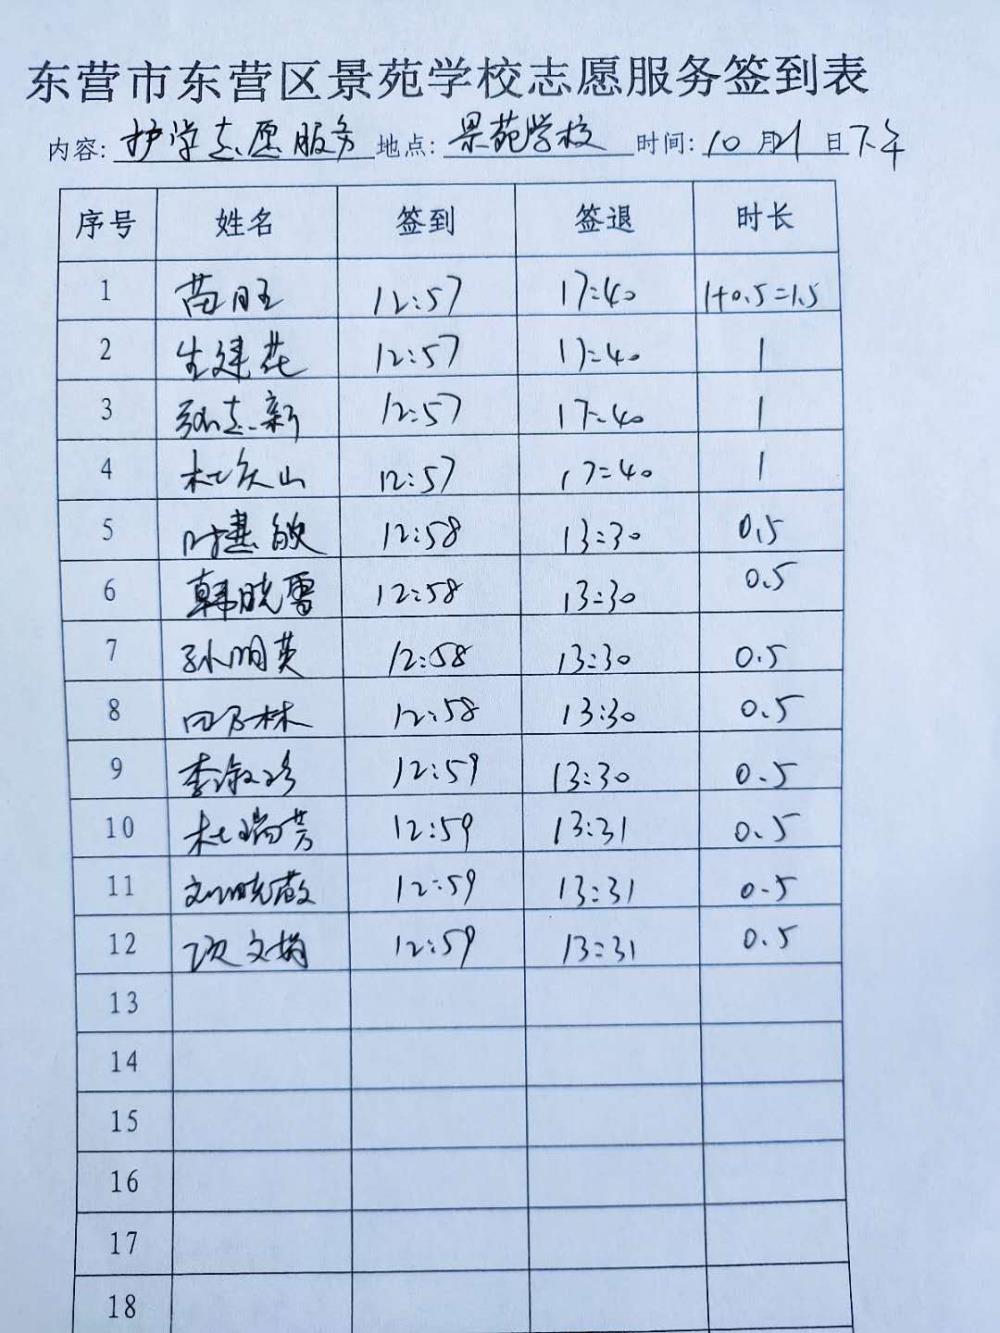 东营市东营区景苑学校志愿服务签到表
内容: 护学志愿服务 地点: 景苑学校 时间: 10 月21 日下午
序号 姓名 签到 签退 时长
1 苗旺 12:57 17:40 1+0.5=1.5
2 生建花 12:57 17:40 1
3 张志新 12:57 17:40 1
4 12:57 17:40 1
5 12:58 13:30 0.5
6 韩晓雪 12:58 13:30 0.5
7 孙明英 12:58 13:30 0.5
8 田乃林 12:58 13:30 0.5
9 李淑珍 12:59 13:30 0.5
10 杜瑞芳 12:59 13:31 0.5
11 刘晓蔽 12:59 13:31 0.5
12 项文娟 12:59 13:31 0.5
13
14
15
16
17
18